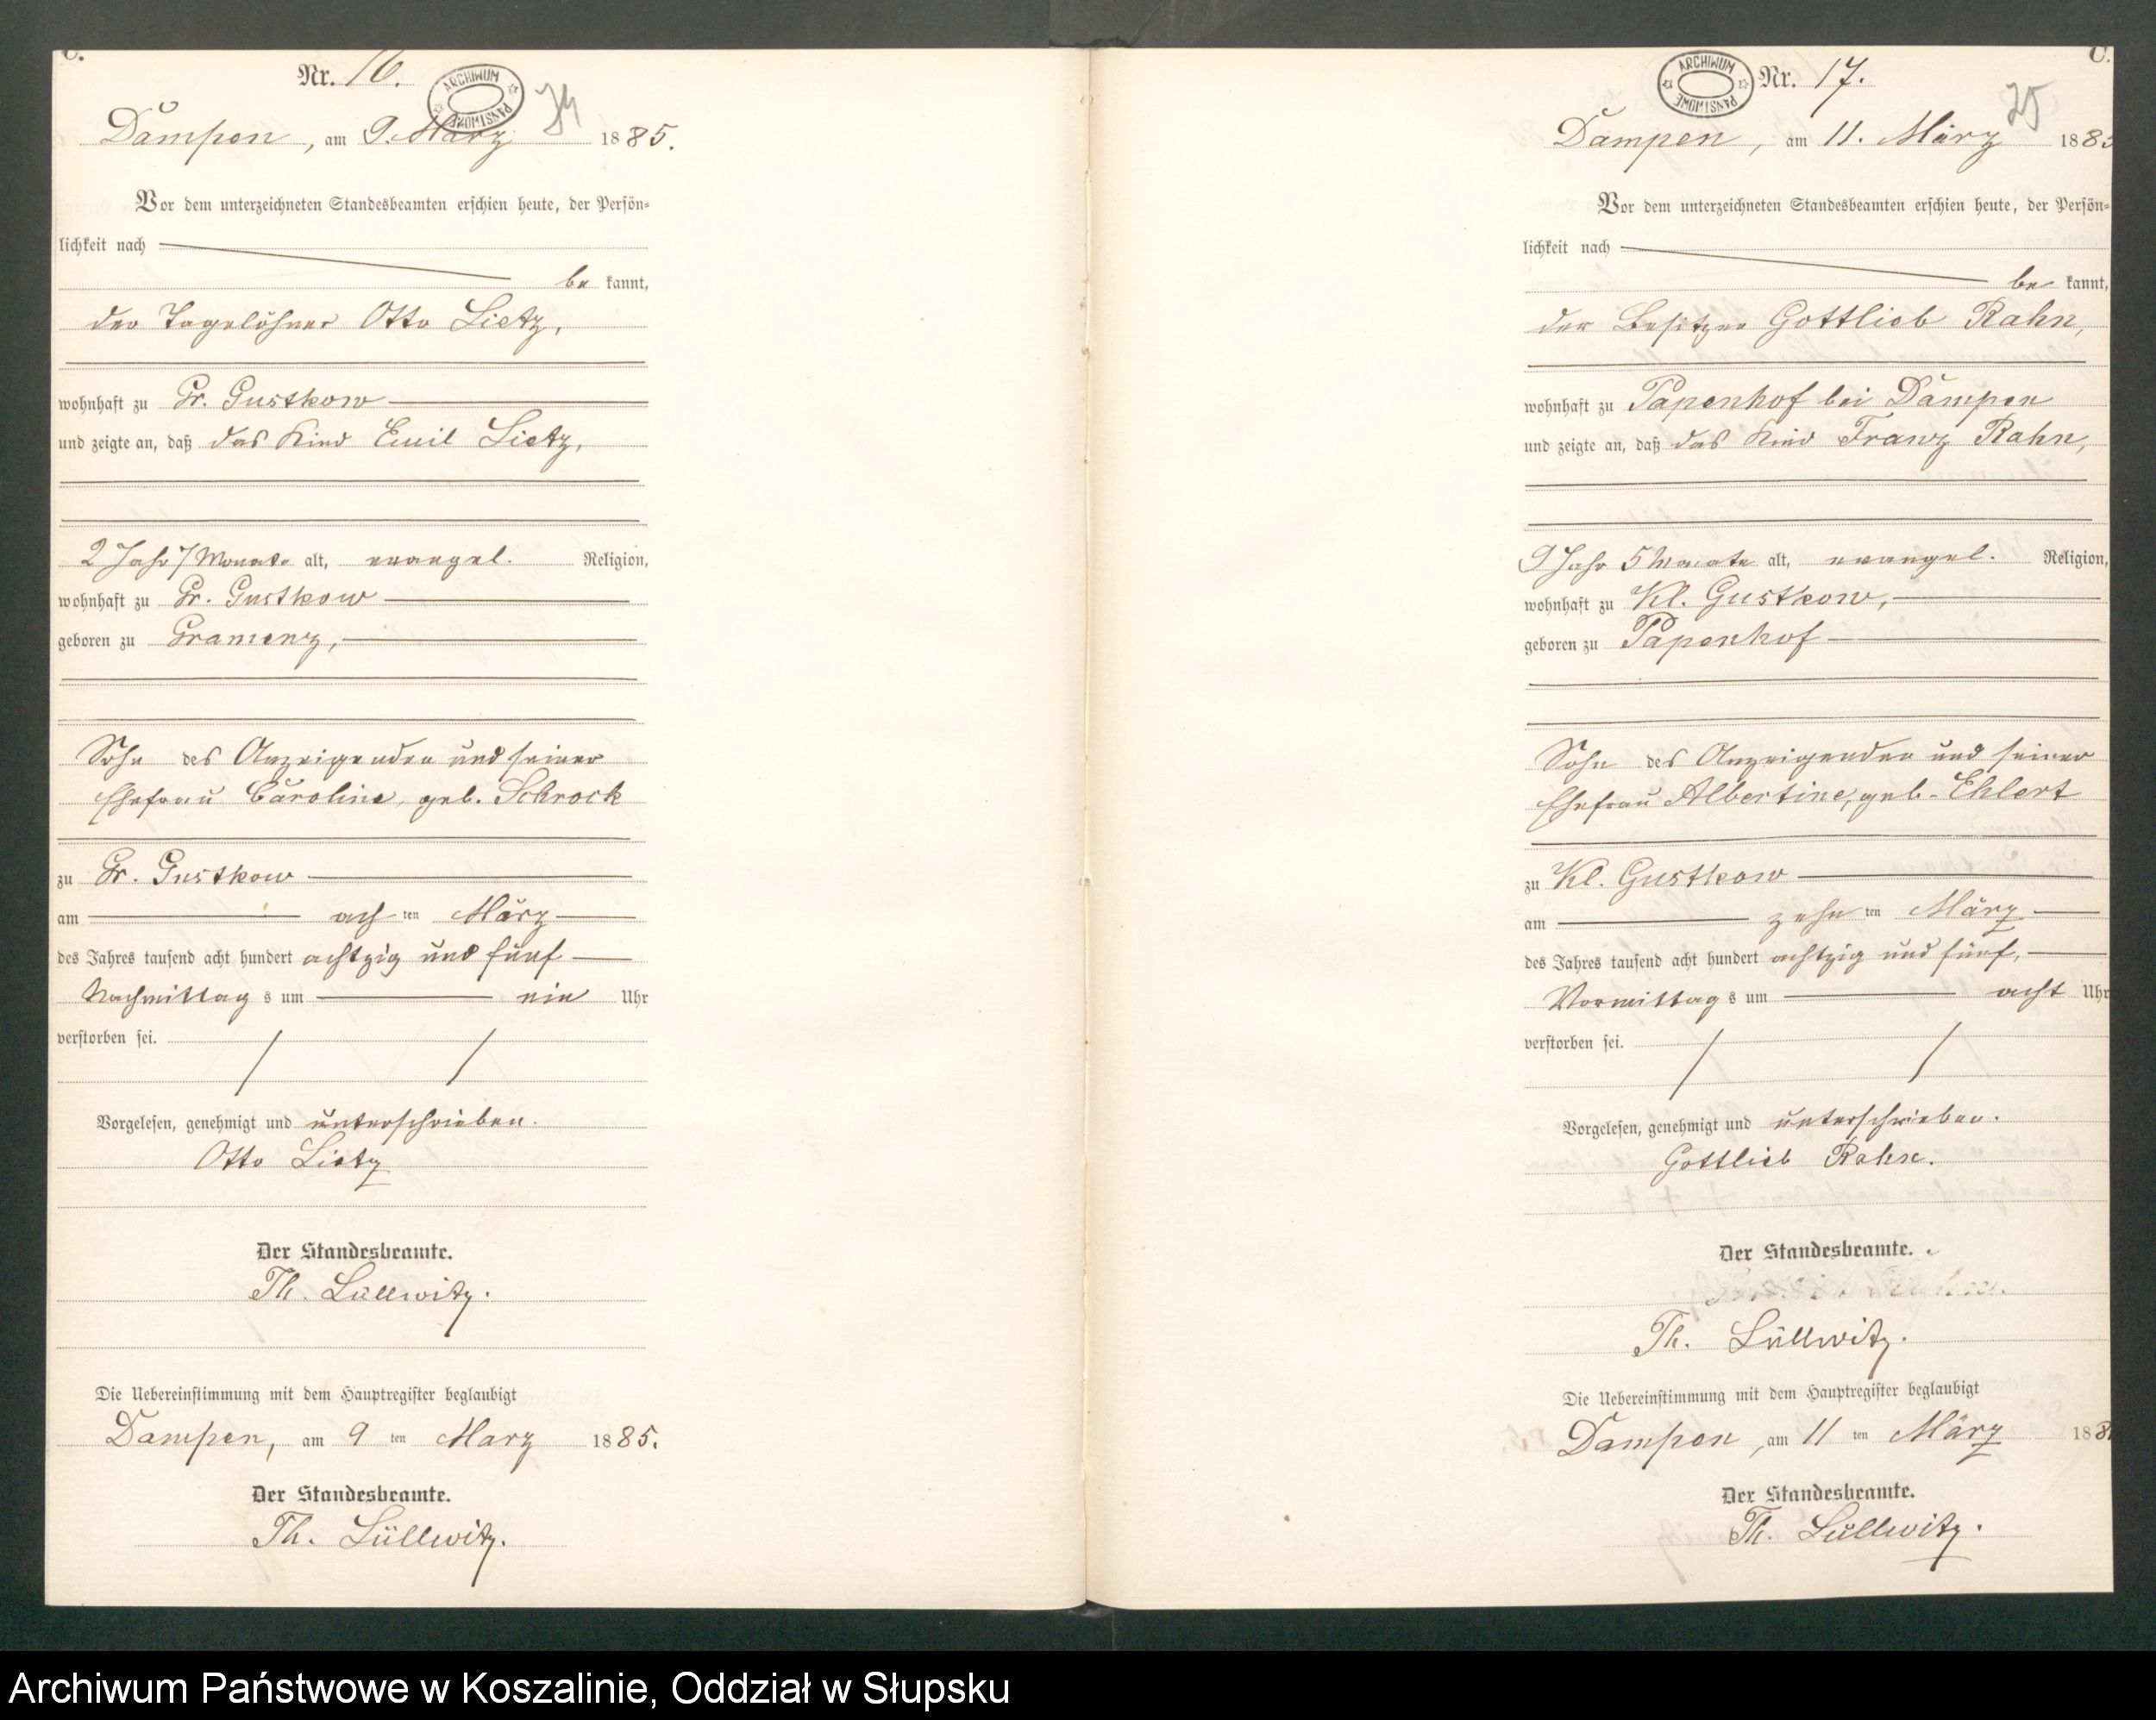 C.
Nr. 16.
ARCHIWUM PAŃSTWOWE
24
Dampen, am 9. März 1885.
Vor dem unterzeichneten Standesbeamten erschien heute, der Persön-
lichkeit nach
be kannt,
der Tagelöhner Otto Lietz,
wohnhaft zu Gr. Gustkow
und zeigte an, daß das Kind Emil Lietz,
2 Jahr 7 Monate alt, evangel. Religion,
wohnhaft zu Gr. Gustkow
geboren zu Gramenz,
Sohn des Anzeigenden und seiner
Ehefrau Caroline, geb. Schrock
zu Gr. Gustkow
am ach ten März
des Jahres tausend acht hundert achtzig und fünf
Nachmittag s um ein Uhr
verstorben sei.
Vorgelesen, genehmigt und unterschrieben.
Otto Lietz
Der Standesbeamte.
Th. Lüllwitz.
Die Uebereinstimmung mit dem Hauptregister beglaubigt
Dampen, am 9 ten März 1885.
Der Standesbeamte.
Th. Lüllwitz.
C.
ARCHIWUM PAŃSTWOWE
Nr. 17.
25
Dampen, am 11. März 1885
Vor dem unterzeichneten Standesbeamten erschien heute, der Persön-
lichkeit nach
be kannt,
der Besitzer Gottlieb Rahn,
wohnhaft zu Papenhof bei Dampen
und zeigte an, daß das Kind Franz Rahn,
9 Jahr 5 Monate alt, evangel. Religion,
wohnhaft zu Kl. Gustkow,
geboren zu Papenhof
Sohn des Anzeigenden und seiner
Ehefrau Albertine, geb. Ehlert
zu Kl. Gustkow
am zehn ten März
des Jahres tausend acht hundert achtzig und fünf,
Vormittag s um acht Uhr
verstorben sei.
Vorgelesen, genehmigt und unterschrieben.
Gottlieb Rahn.
Der Standesbeamte.
Th. Lüllwitz.
Die Uebereinstimmung mit dem Hauptregister beglaubigt
Dampen, am 11 ten März 188
Der Standesbeamte.
Th. Lüllwitz.
Archiwum Państwowe w Koszalinie, Oddział w Słupsku